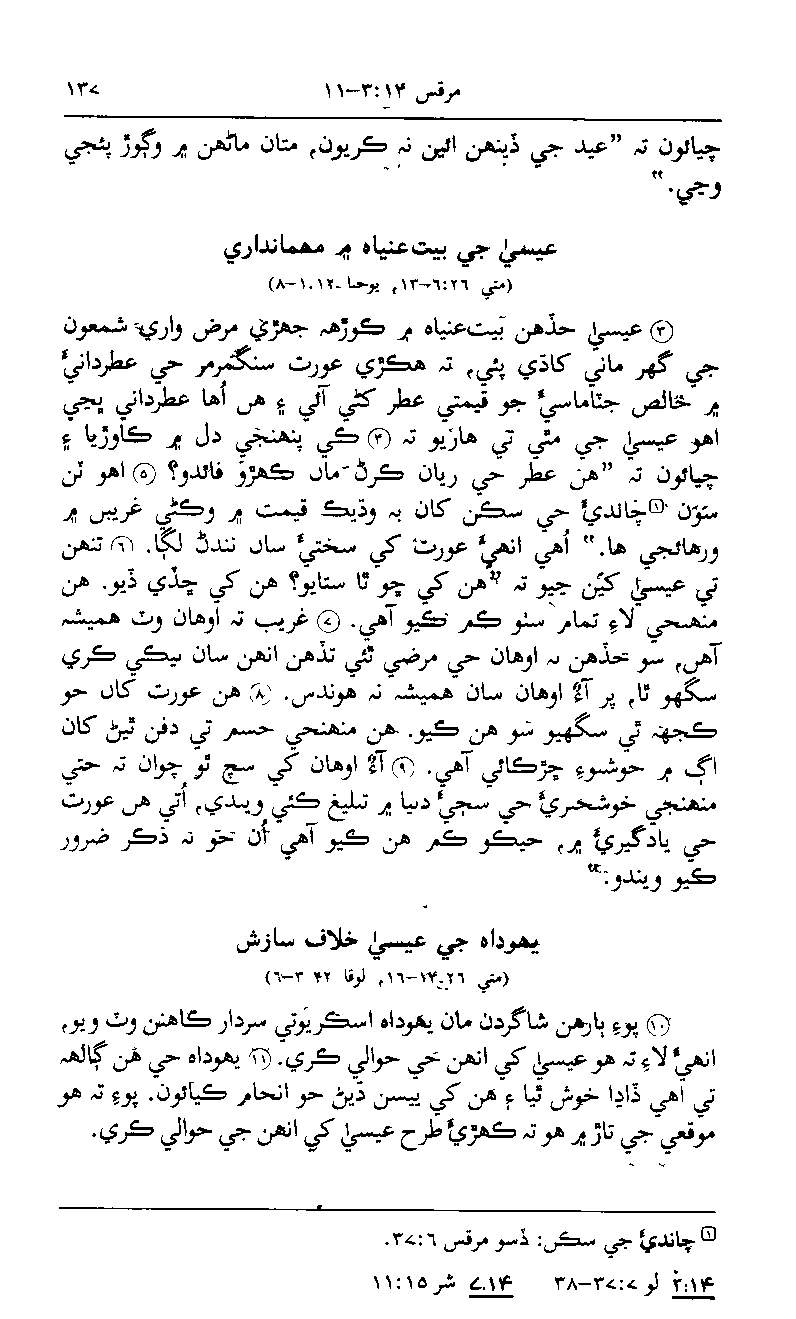 مرقس ۱۴:‏۳–۱۱ ۱۳۷
چيائون ته ”عيد جي ڏينهن ائين نہ ڪريون، متان ماڻهن ۾ وڳوڙ پئجي
وڃي.“
عيسيٰ جي بيت‌عنياه ۾ مهمانداري
(متي ۲۶:‏۶–۱۳، يوحنا ۱۲.‏۱–۸)
(۳) عيسيٰ جڏهن بيت‌عنياه ۾ ڪوڙهہ جهڙي مرض واري شمعون
جي گهر ماني کاڌي پئي، تہ هڪڙي عورت سنگمرمر جي عطردانيءَ
۾ خالص جٽاماسيءَ جو قيمتي عطر کڻي آئي ۽ هن اُها عطرداني ڀڃي
اهو عيسيٰ جي مٿي تي هاريو تہ (۴) کي پنهنجي دل ۾ ڪاوڙيا ۽
چيائون تہ ”هن عطر جي زيان ڪرڻ مان ڪهڙو فائدو؟ (۵) اهو ٽن
سؤن [۱] چانديءَ جي سڪن کان بہ وڌيڪ قيمت ۾ وڪڻي غريبن ۾
ورهائجي ها.“ اُهي انهيءَ عورت کي سختيءَ سان نندڻ لڳا. (۶) تنهن
تي عيسيٰ کين چيو تہ ”هن کي ڇو ٿا ستايو؟ هن کي ڇڏي ڏيو. هن
منهنجي لاءِ تمام سٺو ڪم ڪيو آهي. (۷) غريب تہ اوهان وٽ هميشہ
آهن، سو جڏهن بہ اوهان جي مرضي ٿئي تڏهن انهن سان نيڪي ڪري
سگهو ٿا، پر آءٌ اوهان سان هميشہ نہ هوندس. (۸) هن عورت کان جو
ڪجهہ ٿي سگهيو سو هن ڪيو. هن منهنجي جسم تي دفن ٿيڻ کان
اڳ ۾ خوشبوءِ ڇڙڪائي آهي. (۹) آءٌ اوهان کي سچ ٿو چوان تہ جتي
منهنجي خوشخبريءَ جي سڄيءَ دنيا ۾ تبليغ ڪئي ويندي، اُتي هن عورت
جي يادگيريءَ ۾، جيڪو ڪم هن ڪيو آهي اُن جو بہ ذڪر ضرور
ڪيو ويندو.“
يهوداه جي عيسيٰ خلاف سازش
(متي ۲۶:‏۱۴–۱۶، لوقا ۲۲ ۳–۶)
(۱۰) پوءِ ٻارهن شاگردن مان يهوداه نالي اسڪريوتي سردار ڪاهنن وٽ ويو،
انهيءَ لاءِ تہ هو عيسيٰ کي انهن جي حوالي ڪري. (۱۱) يهوداه جي هُن ڳالهہ
تي اهي ڏاڍا خوش ٿيا ۽ هن کي پيسن ڏيڻ جو انجام ڪيائون. پوءِ تہ هو
موقعي جي تاڙ ۾ هو تہ ڪهڙيءَ طرح عيسيٰ کي انهن جي حوالي ڪري.
[۱] چانديءَ جي سڪن: ڏسو مرقس ۶:‏۳۷.
۱۴:‏۳ لو ۷:‏۳۷–۳۸ ۱۴.‏۷ شر ۱۵:‏۱۱